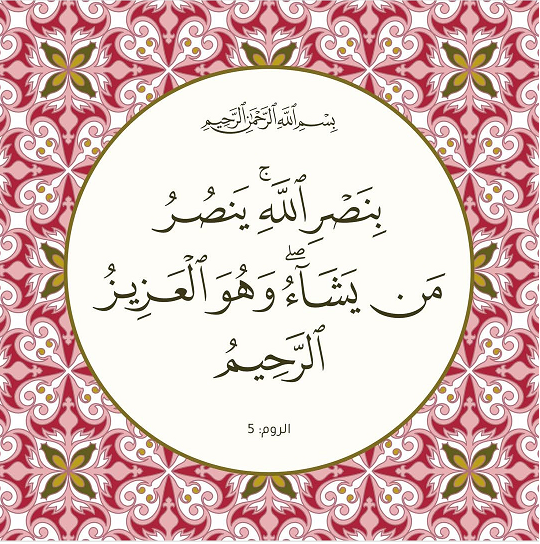 بِسْمِ ٱللَّهِ ٱلرَّحْمَٰنِ ٱلرَّحِيمِ
بِنَصْرِ ٱللَّهِ ۚ يَنصُرُ
مَن يَشَآءُ ۖ وَهُوَ ٱلْعَزِيزُ
ٱلرَّحِيمُ
الروم: 5